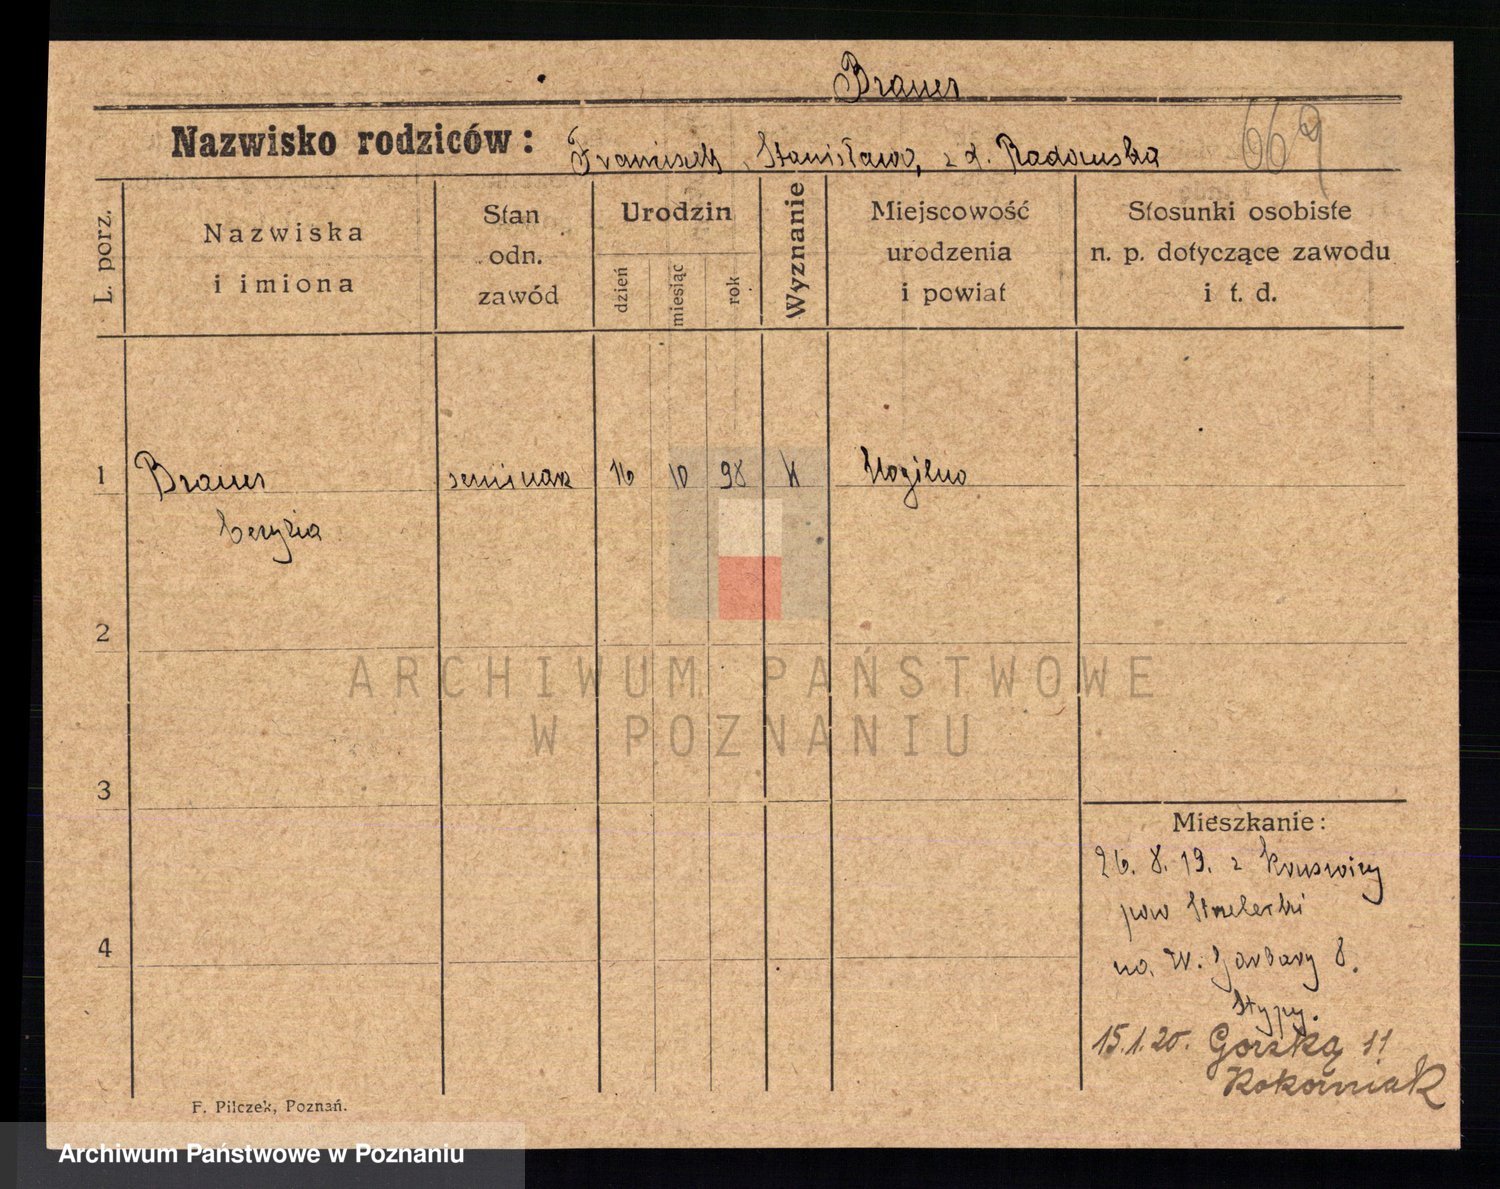 Brauer
Nazwisko rodziców: Franciszek, Stanisława, z d. Radomska
669
L. porz.
Nazwiska
i imiona
Stan
odn.
zawód
Urodzin
dzień
miesiąc
rok
Wyznanie
Miejscowość
urodzenia
i powiat
Stosunki osobiste
n. p. dotyczące zawodu
i t. d.
1 Brauer 16 10 98 K Mogilno
2
ARCHIWUM PAŃSTWOWE
W POZNANIU
3
Mieszkanie:
26. 8. 19. z Kruszwicy
pow Strzelecki
na W. Garbary 8.
15.1.20. Gorską 11
4
F. Pilczek, Poznań.
Archiwum Państwowe w Poznaniu